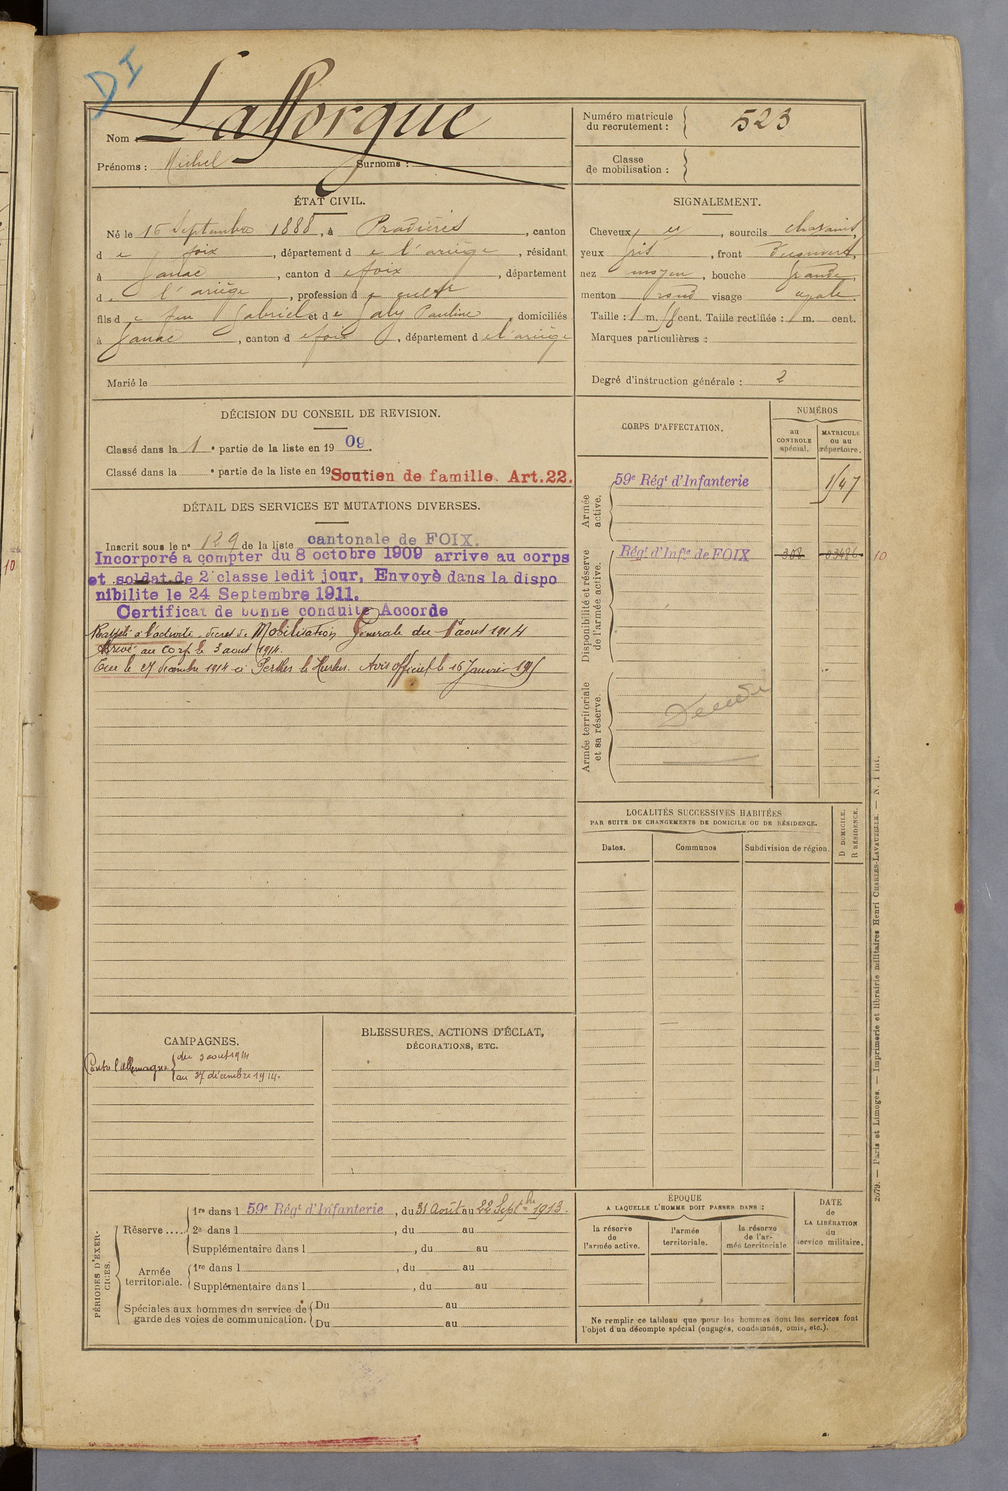 DI
Nom : Lafforgue
Prénoms : Michel Surnoms :
Numéro matricule du recrutement : 523
Classe de mobilisation :
ÉTAT CIVIL.
Né le 16 Septembre 1888, à Pradières, canton
de foix, département de l'ariège, résidant
à Ganac, canton d e foix, département
d. l'ariège, profession d
fils de feu Gabriel et de Galy Pauline, domiciliés
à Ganac, canton d e foix, département de l'ariège
Marié le
SIGNALEMENT.
Cheveux et, sourcils chatains
yeux gris, front découvert,
nez moyen, bouche grande,
menton rond visage ovale
Taille : 1 m. 58 cent. Taille rectifiée : 1 m. cent.
Marques particulières :
Degré d'instruction générale : 2
DÉCISION DU CONSEIL DE REVISION.
Classé dans la 1e partie de la liste en 1909.
Classé dans la e partie de la liste en 19 Soutien de famille. Art.22.
DÉTAIL DES SERVICES ET MUTATIONS DIVERSES.
Inscrit sous le n° 129 de la liste cantonale de FOIX.
Incorporé a compter du 8 octobre 1909 arrive au corps
et soldat de 2e classe ledit jour, Envoyé dans la dispo
nibilite le 24 Septembre 1911.
Certificat de bonne conduite Accorde
Rappelé à l'activité décret de Mobilisation Générale du 1er aout 1914
Arrivé au corps le 3 aout 1914.
Tué le 27 décembre 1914 à Perthes les Hurlus. Avis officiel le 16 Janvier 1915
CORPS D'AFFECTATION.
NUMÉROS
au CONTROLE spécial.
MATRICULE ou au répertoire.
Armée active.
59e Régt d'Infanterie
1/47
Disponibilité et réserve de l'armée active.
Régt d'Infie de FOIX 308 03486 10
Armée territoriale et sa réserve.
Décédé
LOCALITÉS SUCCESSIVES HABITÉES
PAR SUITE DE CHANGEMENTS DE DOMICILE OU DE RÉSIDENCE.
Dates. Communes Subdivision de région. D DOMICILE. R RÉSIDENCE.
CAMPAGNES.
Contre l'Allemagne du 3 aout 1914
au 27 décembre 1914.
BLESSURES, ACTIONS D'ÉCLAT,
DÉCORATIONS, ETC.
PÉRIODES D'EXERCICES.
Réserve ....
1re dans l 59e Régt d'Infanterie, du 31 Août au 22 Septbre 1913.
2e dans l , du au
Supplémentaire dans l , du au
Armée territoriale.
1re dans l , du au
Supplémentaire dans l , du au
Spéciales aux hommes du service de garde des voies de communication.
Du au
Du au
ÉPOQUE
A LAQUELLE L'HOMME DOIT PASSER DANS :
la réserve de l'armée active.
l'armée territoriale.
la réserve de l'armée territoriale
DATE de LA LIBÉRATION du service militaire.
Ne remplir ce tableau que pour les hommes dont les services font
l'objet d'un décompte spécial (engagés, condamnés, omis, etc.).
2079. — Paris et Limoges. — Imprimerie et librairie militaires Henri CHARLES-LAVAUZELLE. — N. 1 int.
10